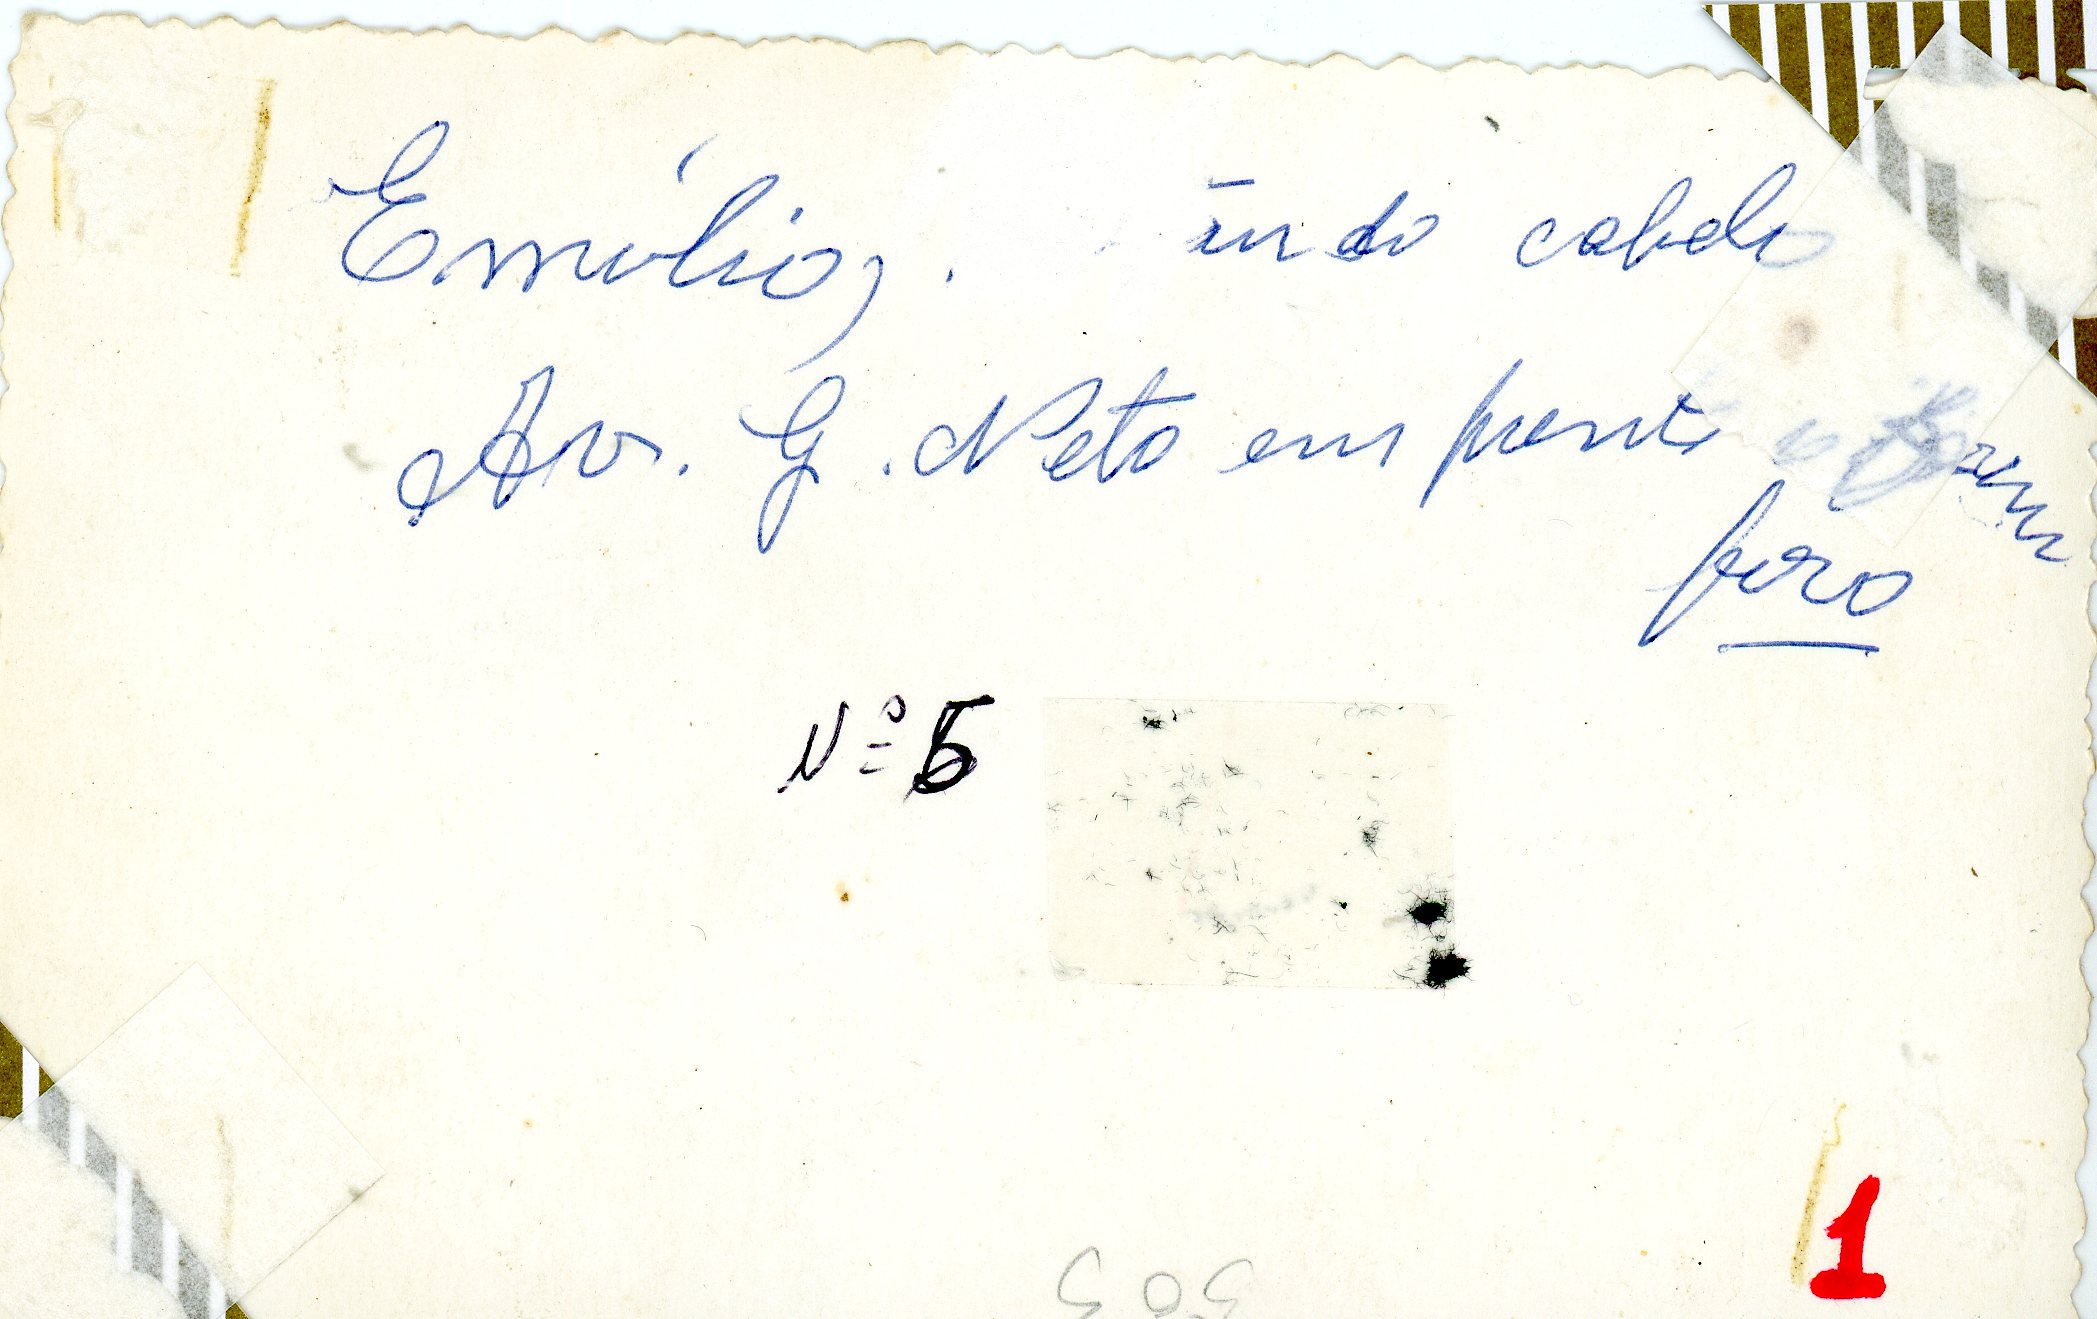 Emílio, indo cabelo
Av. G. Neto em frente o Forum
foro
Nº 5
1